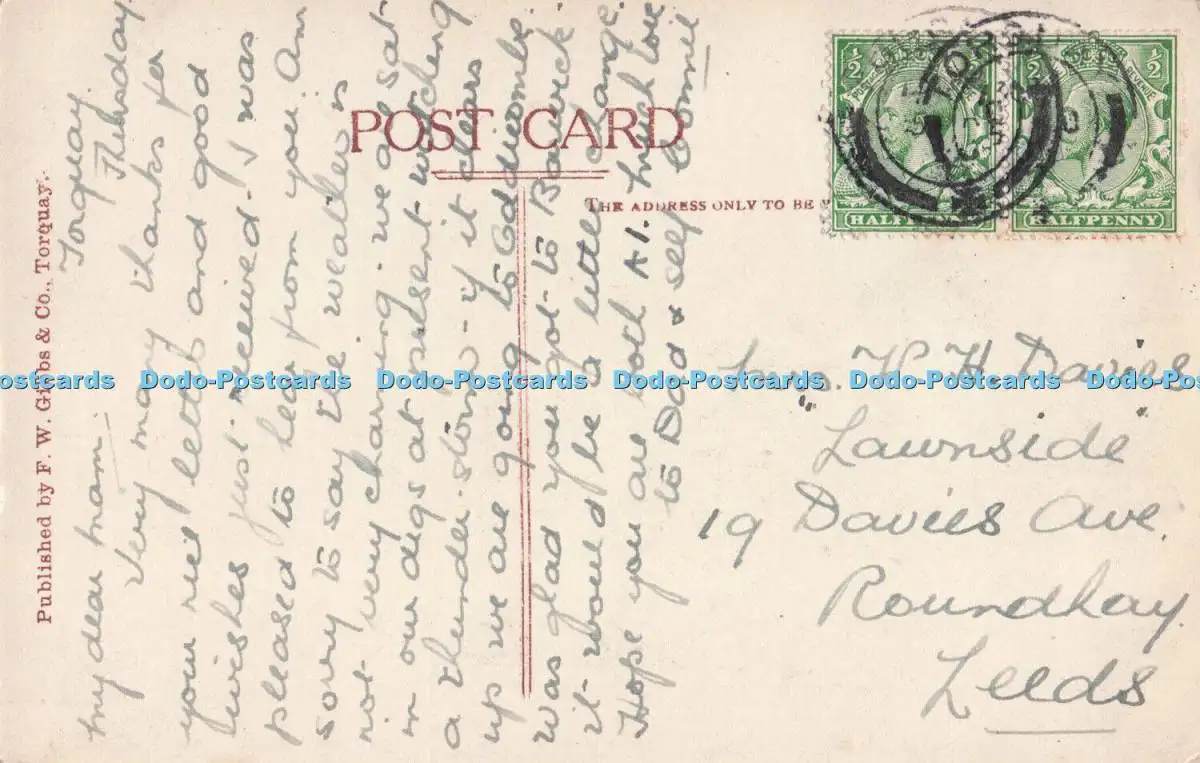 POST CARD
THE ADDRESS ONLY TO BE
Published by F. W. Gibbs & Co., Torquay.
1/2 1/2 1/2 1/2
REVENUE
HALFPENNY
HALFPENNY
Torquay.
Thursday
My dear Mam.
Very many thanks for
your nice letter and good
wishes just received. I was
pleased to hear from you. Am
sorry to say the weather is
not very charming. we are sat
in our digs at present watching
a thunder-storm - if it clears
up we are going to Oddicombe.
Was glad you got to Barwick.
it would be a little change.
Hope you are both A1. much love
to Dad & self
H. H. Davies
"Lawnside"
19 Davies Ave
Roundhay.
Leeds
Dodo-Postcards Dodo-Postcards Dodo-Postcards Dodo-Postcards Dodo-Postcards